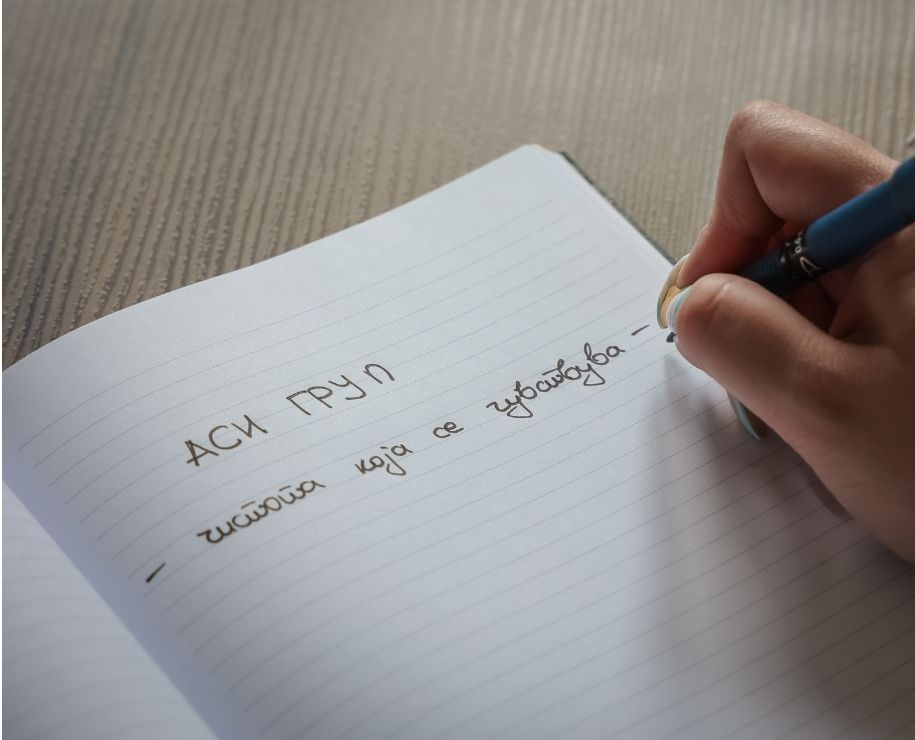 АСИ ГРУП
- чистота која се чувствува -